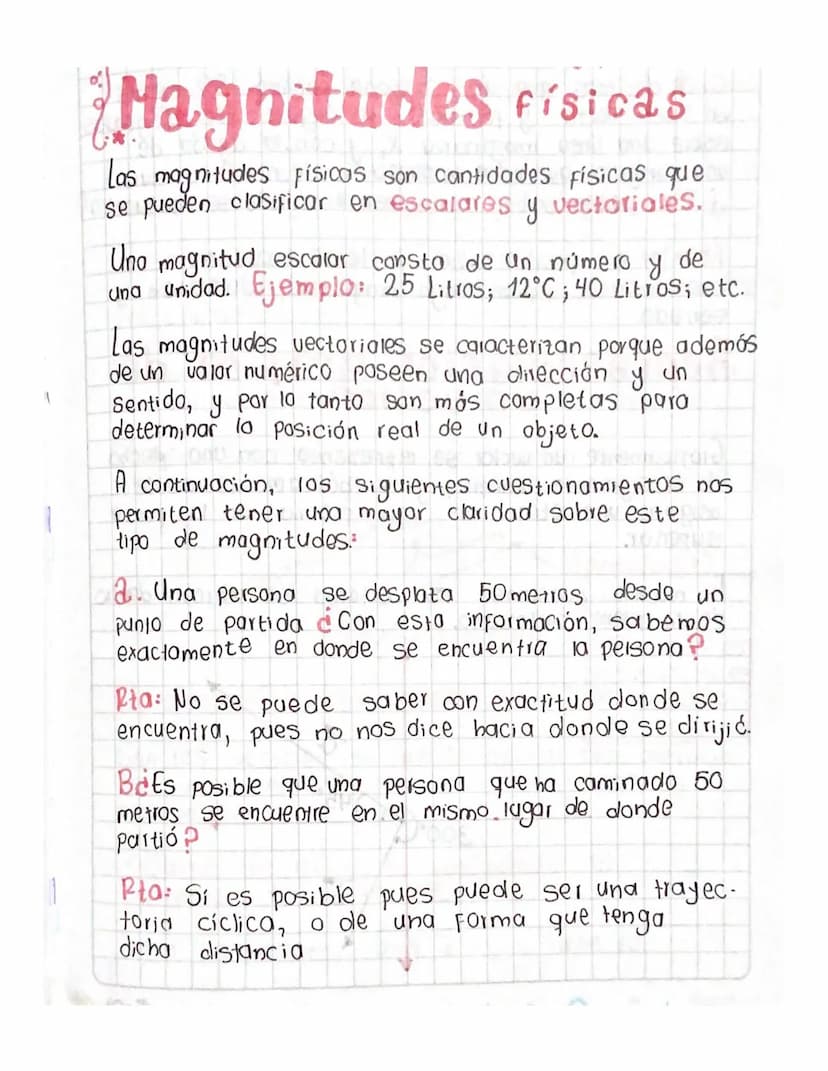 Magnitudes físicas
Las magnitudes físicas son cantidades físicas que
se pueden clasificar en escalares y vectoriales.
Una magnitud escalar consta de un número y de
una unidad. Ejemplo: 25 Litros; 12°C; 40 Litros; etc.
Las magnitudes vectoriales se caracterizan porque además
de un valor numérico poseen una dirección y un
sentido, y por lo tanto son más completas para
determinar la posición real de un objeto.
A continuación, los siguientes cuestionamientos nos
permiten tener una mayor claridad sobre este
tipo de magnitudes:
a. Una persona se desplata 50 metros desde un
punto de partida ¿Con esta información, sabemos
exactamente en donde se encuentra la persona?
Rta: No se puede saber con exactitud donde se
encuentra, pues no nos dice hacia donde se dirijió.
B¿Es posible que una persona que ha caminado 50
metros se encuentre en el mismo lugar de donde
partió?
Rta: Sí es posible pues puede ser una trayec-
toria cíclica, o de una forma que tenga
dicha distancia